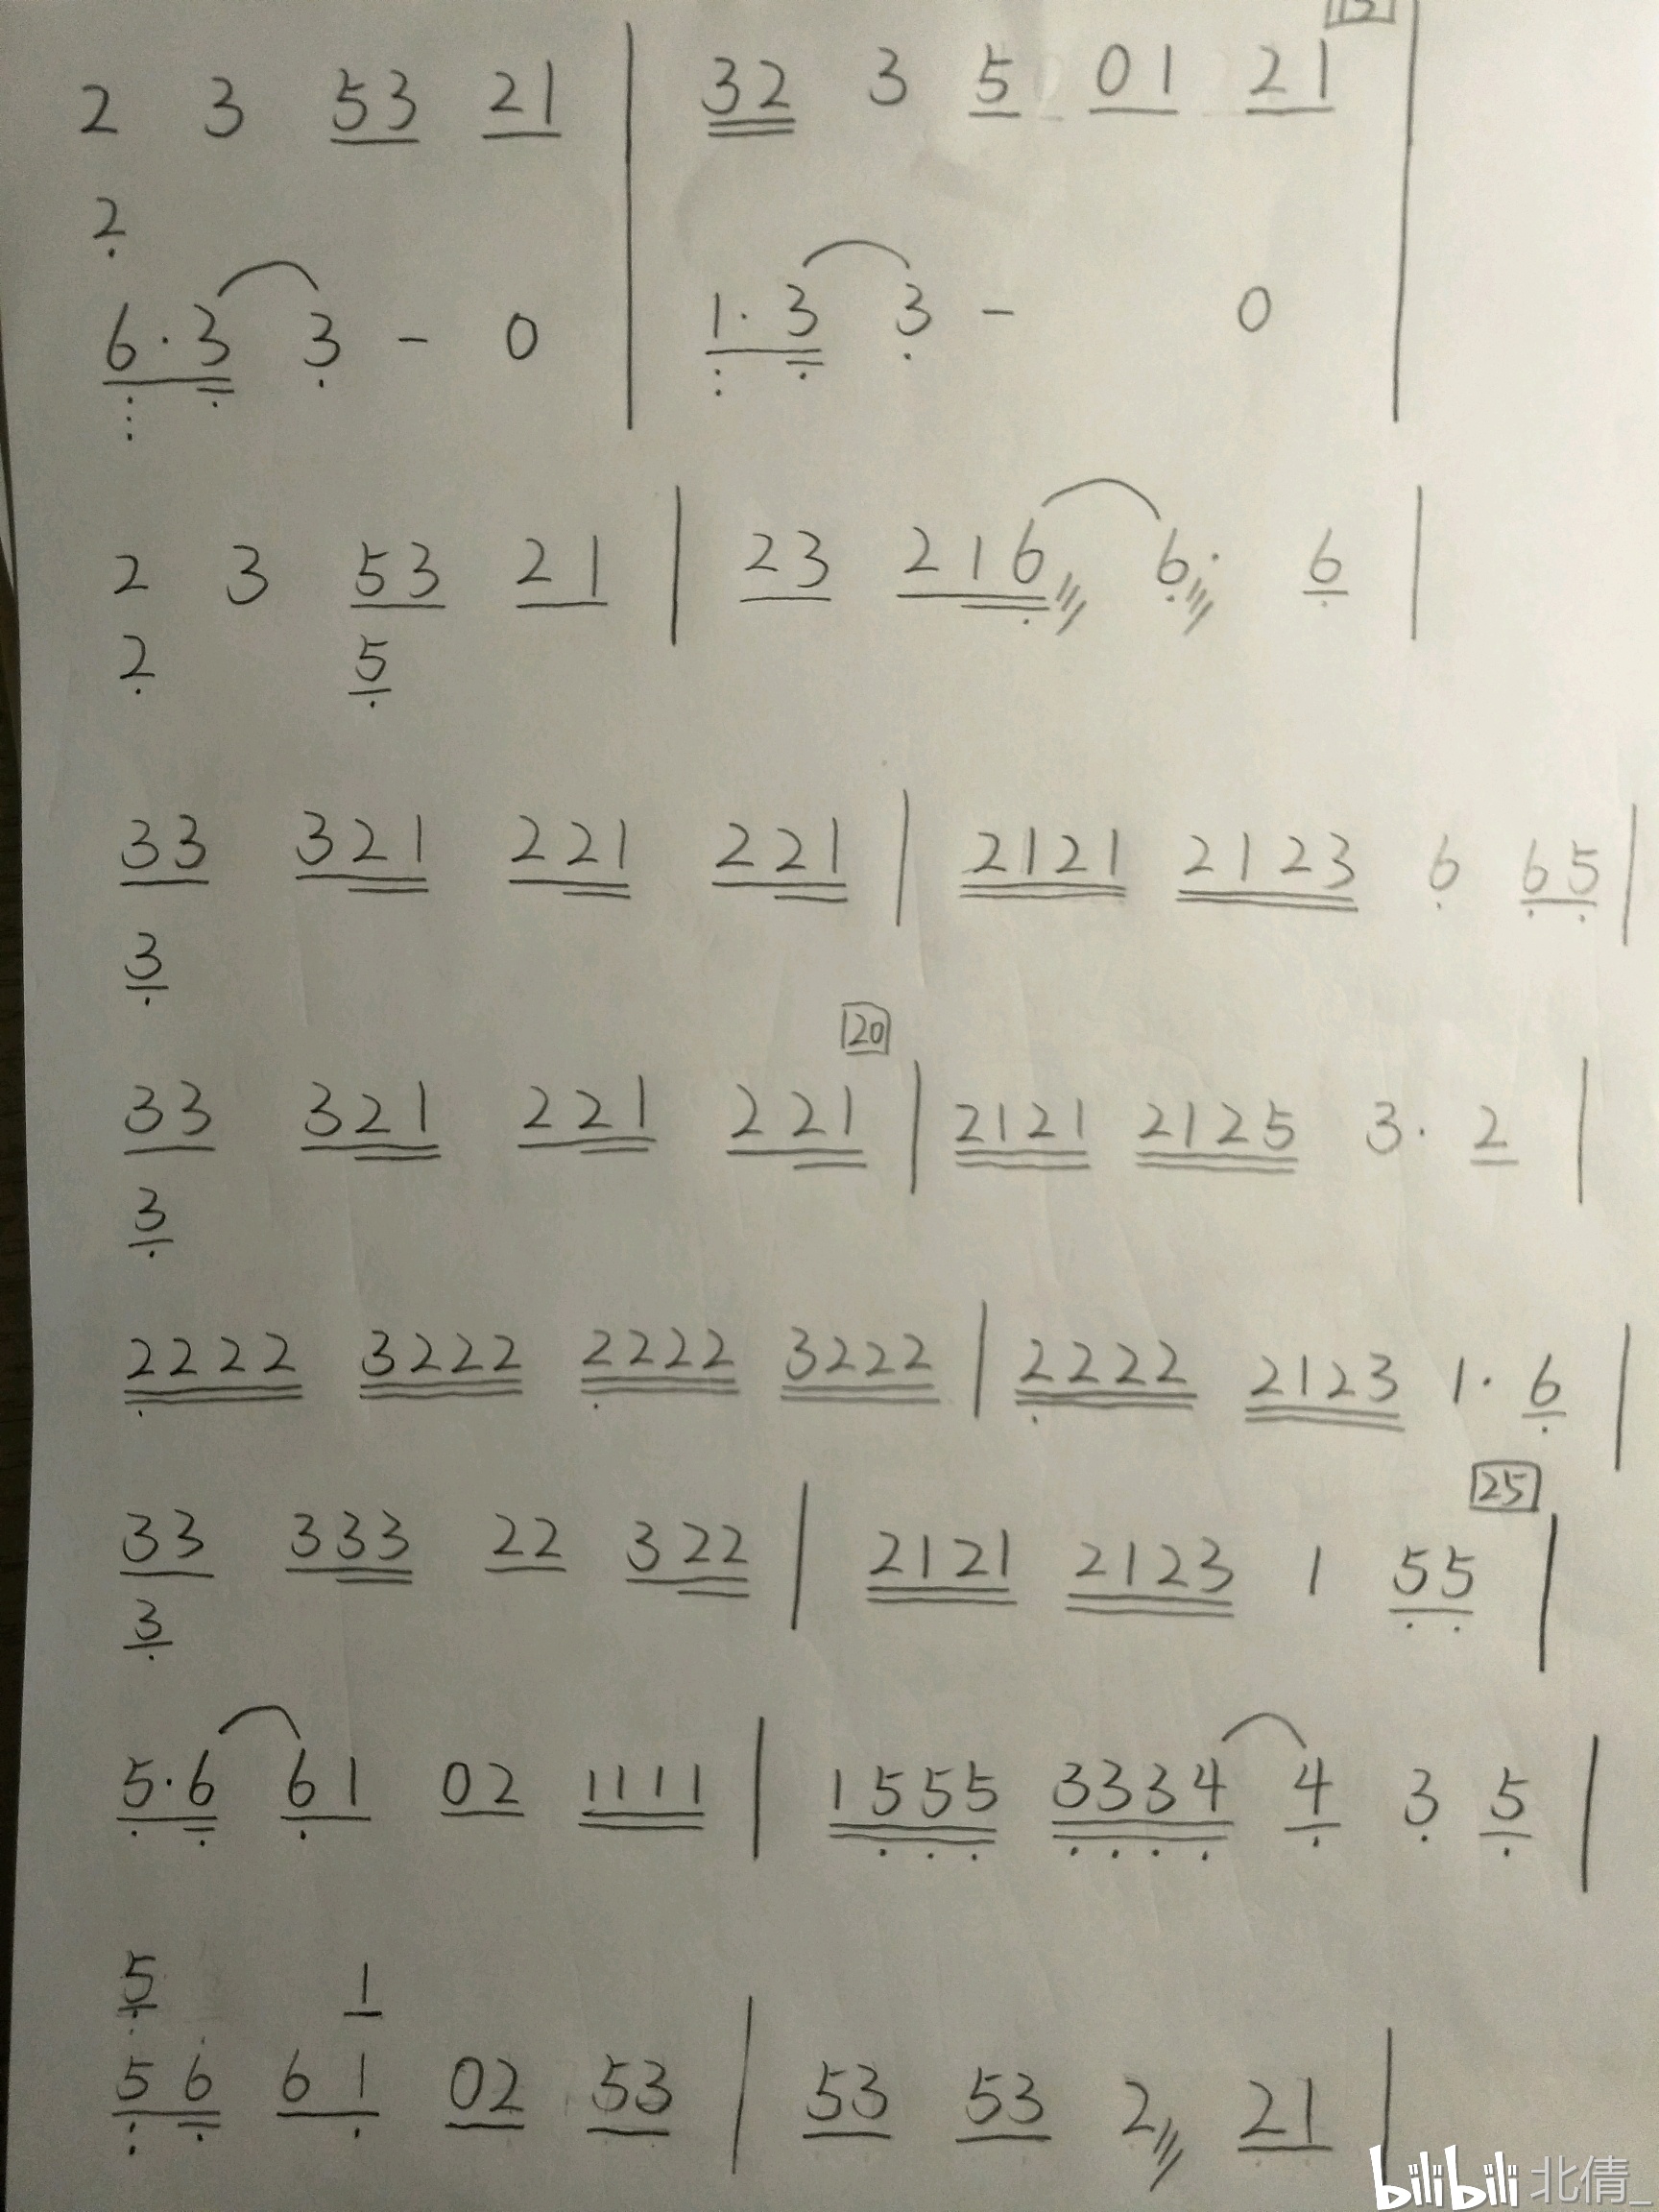 2 3 53 21 | 32 3 5 01 21 |
2
6·3 3 - 0 | 1·3 3 - 0
2 3 53 21 | 23 216 6· 6 |
2 5
33 321 221 221 | 2121 2123 6 65 |
3
20
33 321 221 221 | 2121 2125 3· 2 |
3
2222 3222 2222 3222 | 2222 2123 1· 6 |
25
33 333 22 322 | 2121 2123 1 55 |
3
5·6 61 02 1111 | 1555 3334 4 3 5 |
5 1
56 61 02 53 | 53 53 2 21 |
bilibili 北倩_